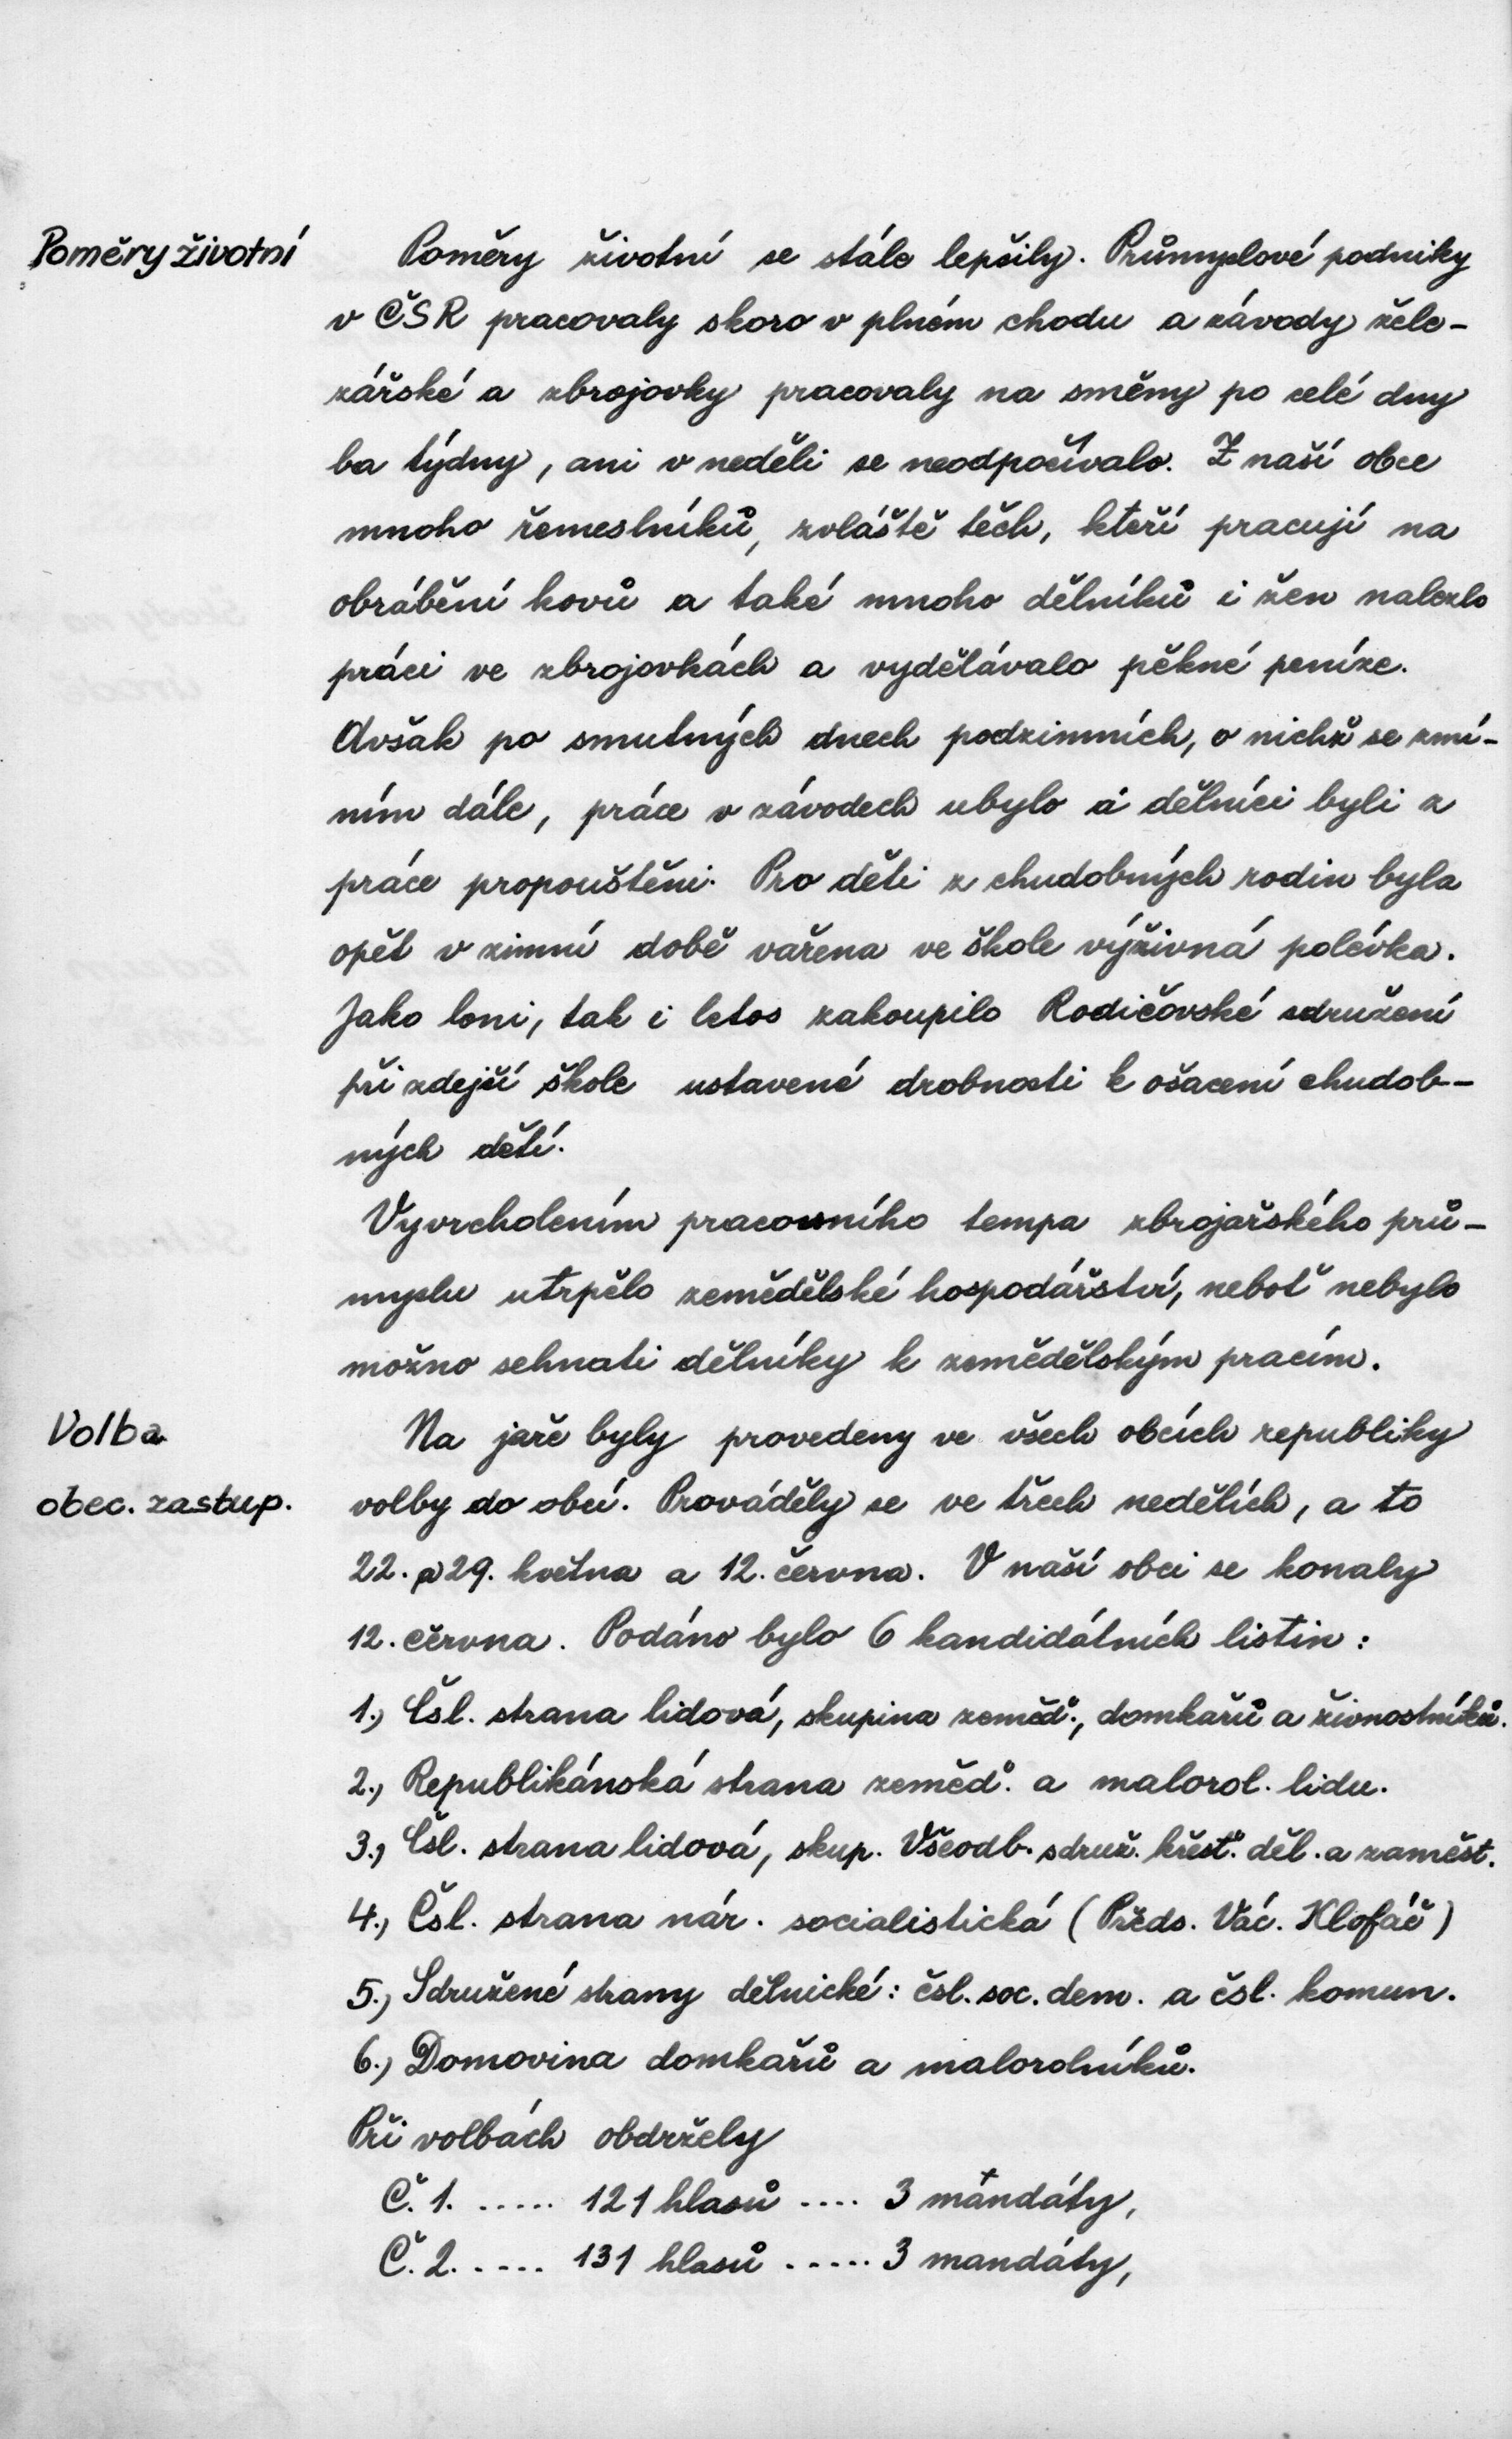 Poměry životní
Poměry životní se stále lepšily. Průmyslové podniky
v ČSR pracovaly skoro v plném chodu a závody žele-
zářské a zbrojovky pracovaly na směny po celé dny
ba týdny, ani v neděli se neodpočívalo. Z naší obce
mnoho řemeslníků, zvláště těch, kteří pracují na
obrábění kovů a také mnoho dělníků i žen nalezlo
práci ve zbrojovkách a vydělávalo pěkné peníze.
Avšak po smutných dnech podzimních, o nichž se zmí-
ním dále, práce v závodech ubylo a dělníci byli z
práce propouštěni. Pro děti z chudobných rodin byla
opět v zimní době vařena ve škole výživná polévka.
Jako loni, tak i letos zakoupilo Rodičovské sdružení
při zdejší škole ustavené drobnosti k ošacení chudob-
ných dětí.
Vyvrcholením pracovního tempa zbrojařského prů-
myslu utrpělo zemědělské hospodářství, neboť nebylo
možno sehnati dělníky k zemědělským pracím.
Volba
obec. zastup.
Na jaře byly provedeny ve všech obcích republiky
volby do obcí. Prováděly se ve třech nedělích, a to
22. a 29. května a 12. června. V naší obci se konaly
12. června. Podáno bylo 6 kandidátních listin:
1., Čsl. strana lidová, skupina zeměď., domkařů a živnostníků.
2., Republikánská strana zeměď. a malorol. lidu.
3., Čsl. strana lidová, skup. Všeodb. sdruž. křesť. děl. a zaměst.
4., Čsl. strana nár. socialistická (Předs. Vác. Klofáč)
5., Sdružené strany dělnické: čsl. soc. dem. a čsl. komun.
6., Domovina domkařů a malorolníků.
Při volbách obdržely
Č. 1. ..... 121 hlasů .... 3 mandáty,
Č. 2. .... 131 hlasů ..... 3 mandáty,